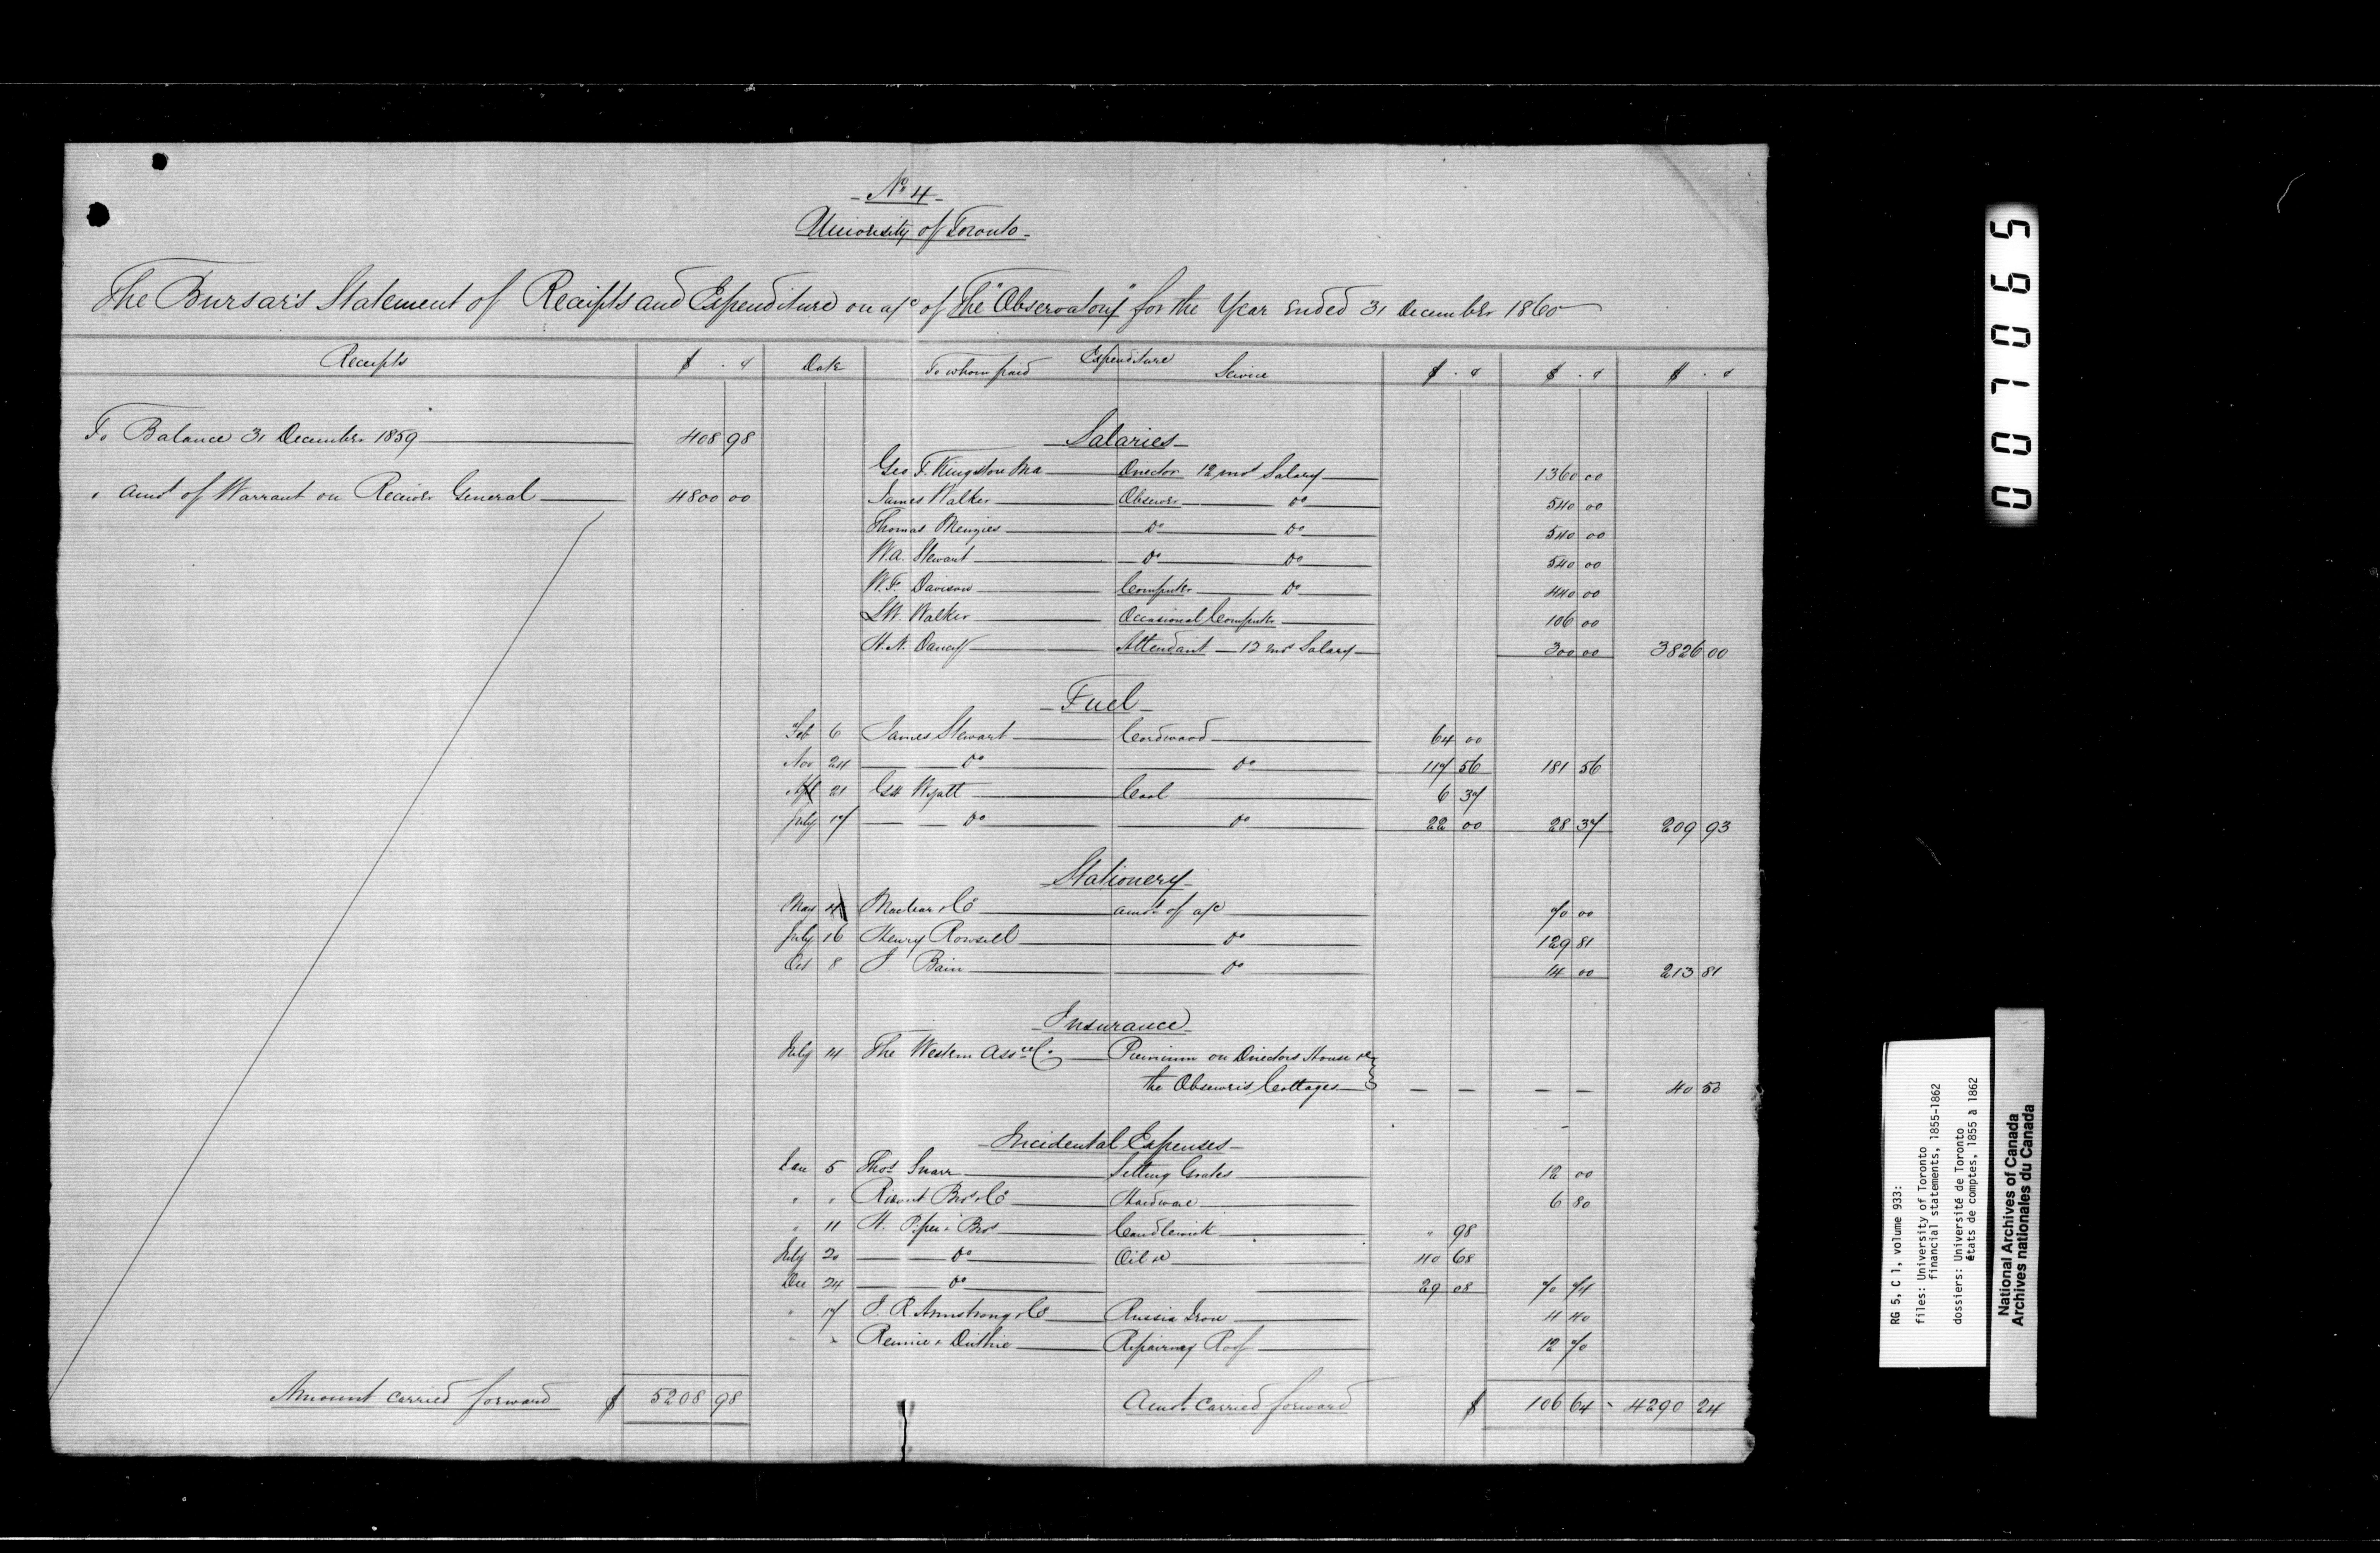 - No 4 -
University of Toronto -
The Bursar's Statement of Receipts and Expenditure on a/c of The "Observatory" for the Year Ended 31 December 1860
Receipts $ . ¢ Date To whom paid Expenditure Service $ . ¢ $ . ¢ $ . ¢
To Balance 31 December 1859 408 98
" Amot of Warrant on Receiver General 4800 00
- Salaries -
Geo T. Kingston Ma Director 12 mos Salary 1360 00
James Walker Observer Do 540 00
Thomas Menzies Do Do 540 00
W.A. Stewart Do Do 540 00
W.F. Davison Computer Do 440 00
Walker Occasional Computer 106 00
Attendant - 12 mos Salary 300 00 3826 00
- Fuel -
Feb 6 James Stewart Cordwood 64 00
Nov 24 Do Do 117 56 181 56
Apl 21 Wyatt Coal 6 37
July 17 Do Do 22 00 28 37 209 93
- Stationery -
May 4 Maclear & Co amot of a/c 70 00
July 16 Henry Rowsell Do 129 81
Oct 8 J Bain Do 14 00 213 81
- Insurance -
July 14 The Western Assce Co Premium on Directors House &
the Observers Cottages - - - - 40 50
- Incidental Expenses -
Jan 5 Thos Snarr Setting Grates 12 00
" " Ridout Bros & Co Hardware 6 80
" 11 H. Piper & Bros Candlewick " 98
July 20 Do Oil &c 40 68
Dec 24 Do 29 08 70 74
" 17 J. R. Armstrong & Co Russia Iron 4 40
" " Rennie & Duthie Repairing Roof 12 70
Amount carried forward $ 5208 98 Amot carried forward $ 106 64 - 4290 24
007065
RG 5, C 1, volume 933:
files: University of Toronto
financial statements, 1855-1862
dossiers: Université de Toronto
états de comptes, 1855 à 1862
National Archives of Canada
Archives nationales du Canada